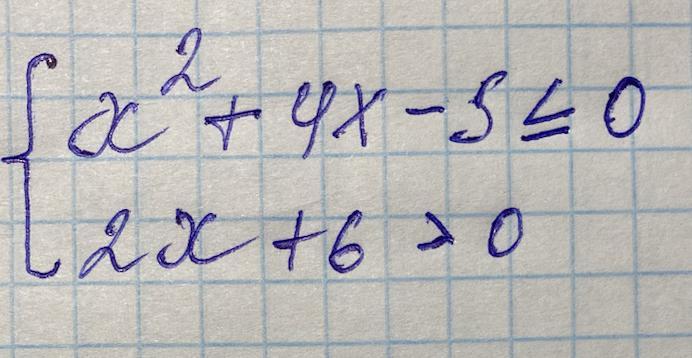 x² + 4x - 5 ≤ 0
2x + 6 > 0